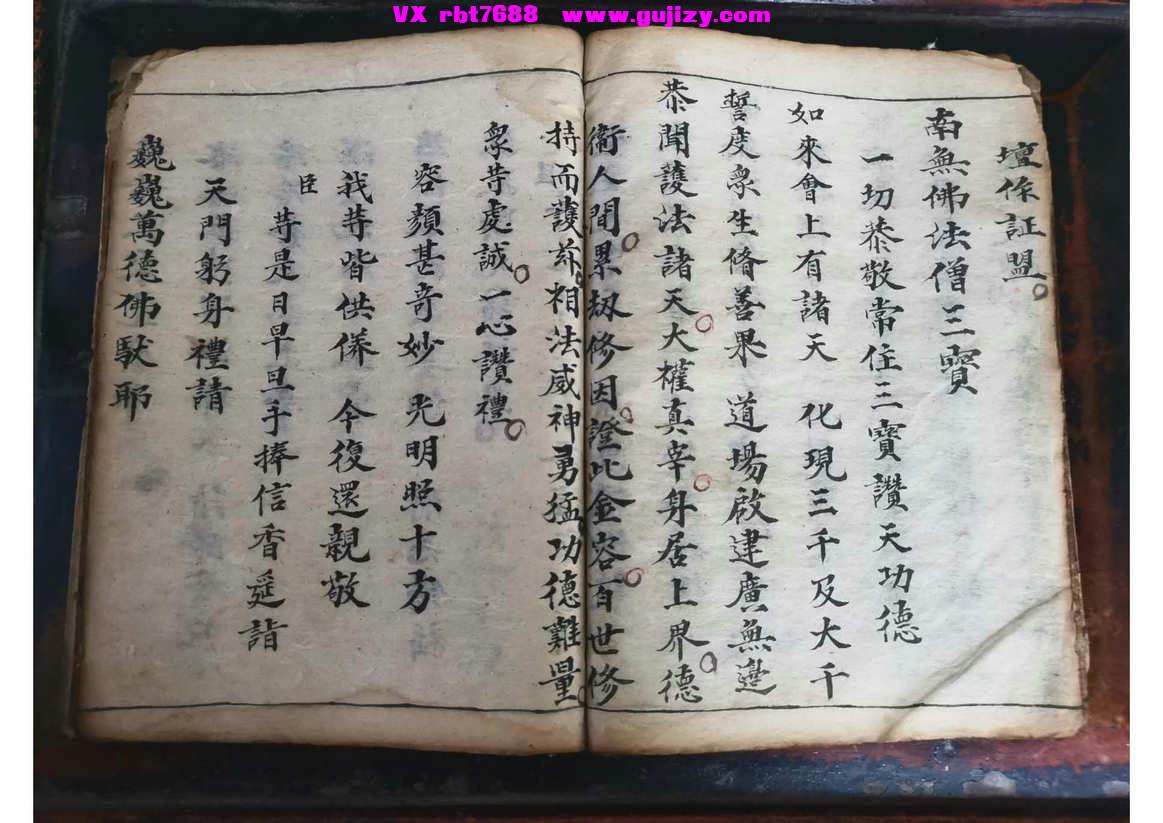 VX rbt7688 www.gujizy.com
壇係証盟
南無佛法僧三寶
一切恭敬常住三寶讚天功德
如來會上有諸天 化現三千及大千
誓度衆生脩善果 道場啟建廣無邊
恭聞護法諸天大權真宰身居上界德
衞人間累刼修因證此金容百世修
持而護茲相法威神勇猛功德難量
衆䓁處誠一心讚禮
容顏甚奇妙 光明照十方
我䓁皆供養 今復還親敬
臣䓁是日早旦手捧信香遥詣
天門躬身禮請
巍巍萬德佛馱耶